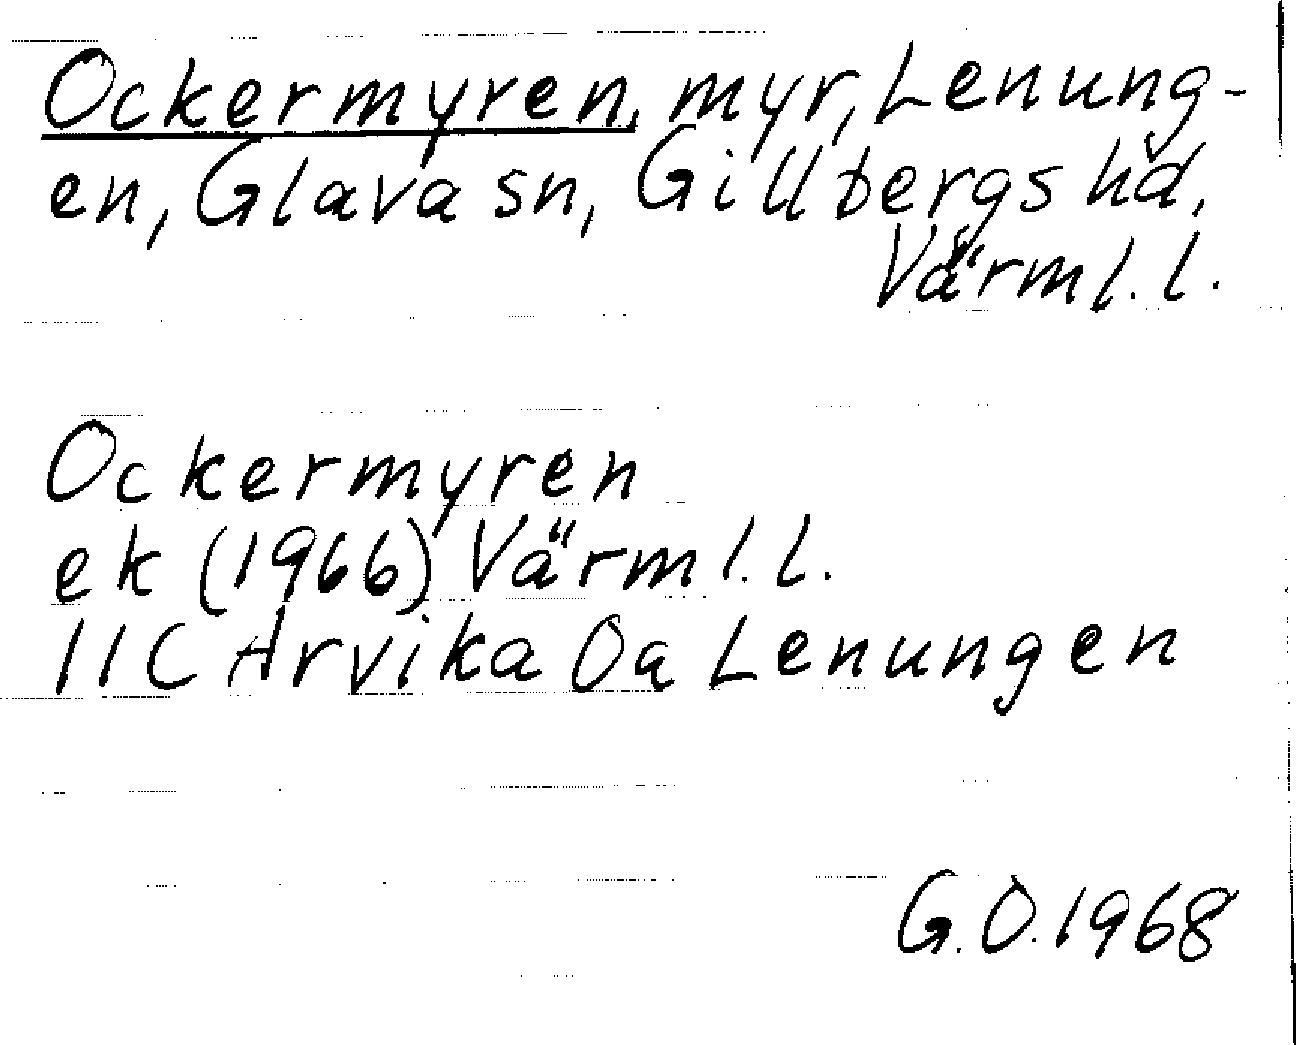 Ockermyren, myr, Lenung-
en, Glava sn, Gillbergs hd,
Värml. l.
Ockermyren
ek (1966) Värml. l.
11C Arvika Oa Lenungen
G.O. 1968